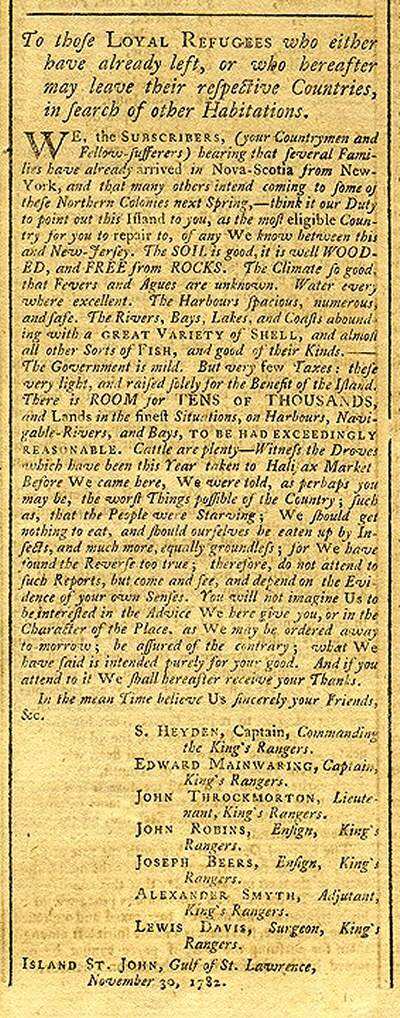 To those LOYAL REFUGEES who either
have already left, or who hereafter
may leave their respective Countries,
in search of other Habitations.
WE, the SUBSCRIBERS, (your Countrymen and
Fellow-sufferers) hearing that several Fami-
lies have already arrived in Nova-Scotia from New-
York, and that many others intend coming to some of
these Northern Colonies next Spring,—think it our Duty
to point out this Island to you, as the most eligible Coun-
try for you to repair to, of any We know between this
and New-Jersey. The SOIL is good, it is well WOOD-
ED, and FREE from ROCKS. The Climate so good,
that Fevers and Agues are unknown. Water every
where excellent. The Harbours spacious, numerous,
and safe. The Rivers, Bays, Lakes, and Coasts abound-
ing with a GREAT VARIETY of SHELL, and almost
all other Sorts of FISH, and good of their Kinds.——
The Government is mild. But very few Taxes; these
very light, and raised solely for the Benefit of the Island.
There is ROOM for TENS OF THOUSANDS,
and Lands in the finest Situations, on Harbours, Navi-
gable-Rivers, and Bays, TO BE HAD EXCEEDINGLY
REASONABLE. Cattle are plenty—Witness the Droves
which have been this Year taken to Halifax Market
Before We came here, We were told, as perhaps you
may be, the worst Things possible of the Country; such
as, that the People were Starving; We should get
nothing to eat, and should ourselves be eaten up by In-
sects, and much more, equally groundless; for We have
found the Reverse too true; therefore, do not attend to
such Reports, but come and see, and depend on the Evi-
dence of your own Senses. You will not imagine Us to
be interested in the Advice We here give you, or in the
Character of the Place. as We may be ordered away
to-morrow; be assured of the contrary; what We
have said is intended purely for your good. And if you
attend to it We shall hereafter receive your Thanks.
In the mean Time believe Us sincerely your Friends,
&c.
S. HEYDEN, Captain, Commanding
the King's Rangers.
EDWARD MAINWARING, Captain,
King's Rangers.
JOHN THROCKMORTON, Lieute-
nant, King's Rangers.
JOHN ROBINS, Ensign, King's
Rangers.
JOSEPH BEERS, Ensign, King's
Rangers.
ALEXANDER SMYTH, Adjutant,
King's Rangers.
LEWIS DAVIS, Surgeon, King's
Rangers.
ISLAND ST. JOHN, Gulf of St. Lawrence,
November 30, 1782.